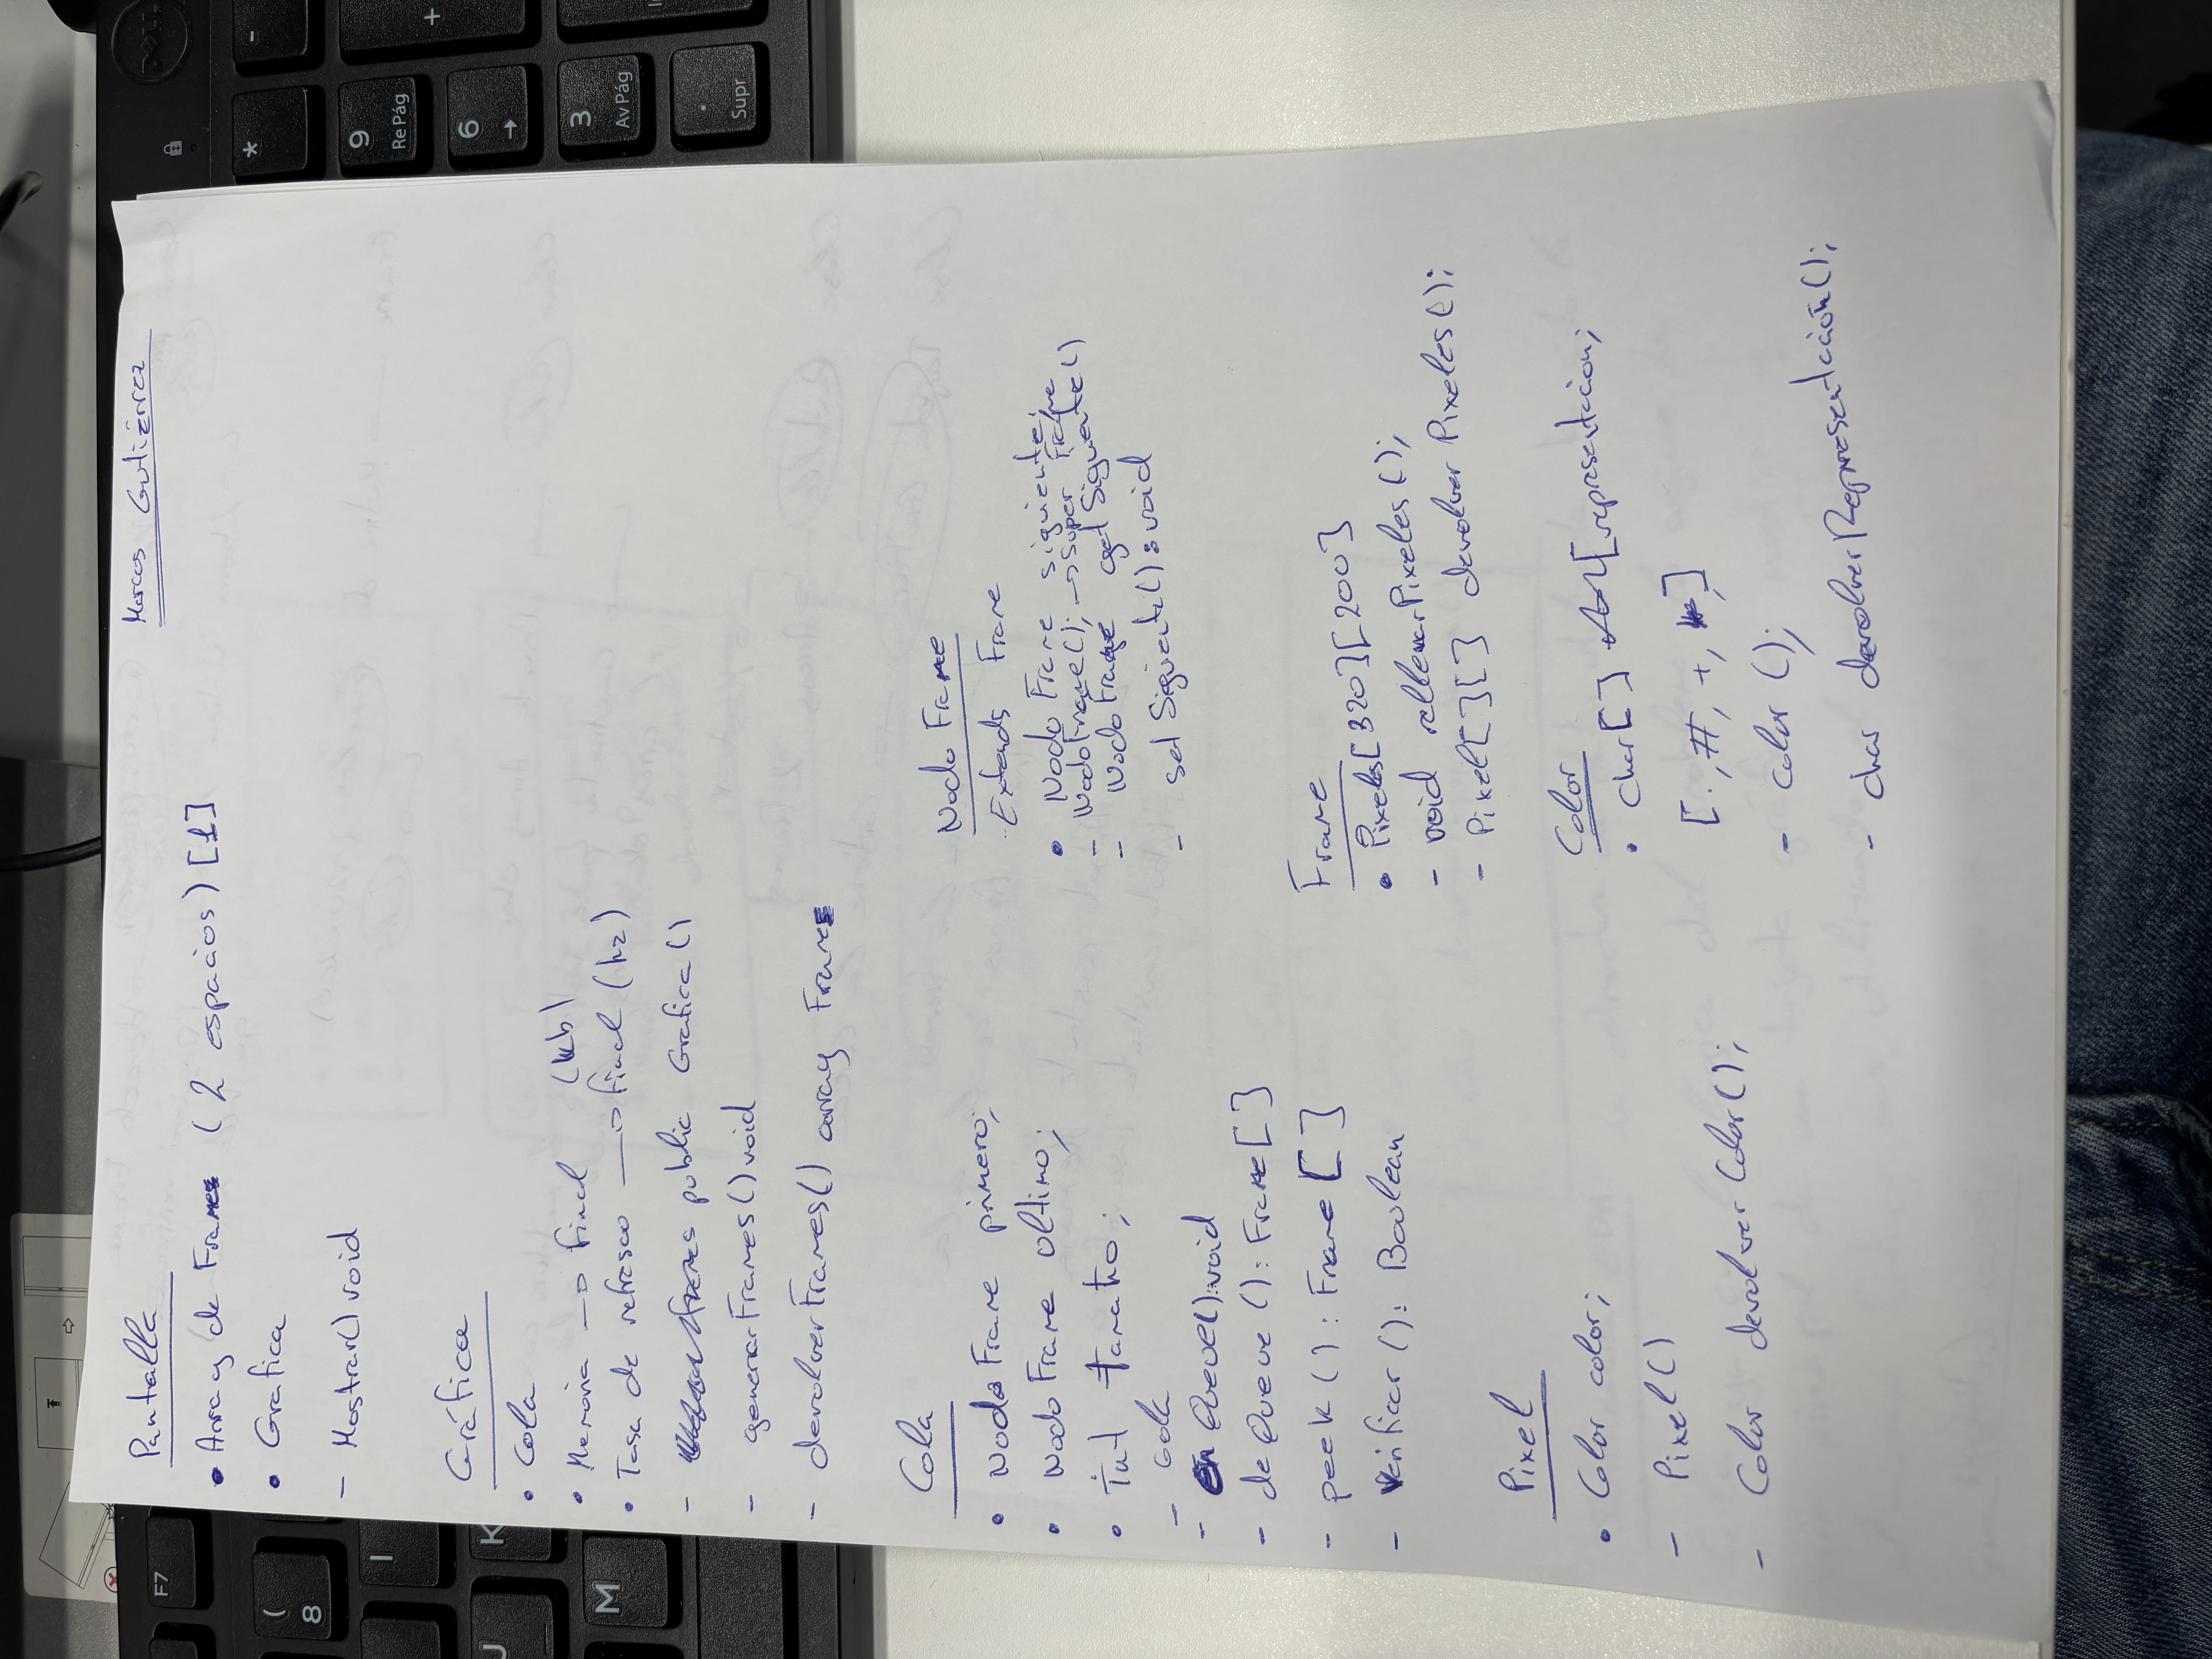 Pantalla
Marcos Gutiérrez
• Array de Frames (2 espacios) [1]
• Grafica
- Mostrar() void
Gráfica
• Cola
• Memoria → final (kb)
• Tasa de refresco → final (hz)
- public Grafica()
- generarFrames() void
- devolverFrames() array Frames
Cola
• NodoFrame primero;
• NodoFrame ultimo;
• Int tamaño;
- Cola
- enQueue():void
- deQueue(): Frame[]
- peek(): Frame[]
- Verificar(): Boolean
Nodo Frame
Extends Frame
• Nodo Frame siguiente;
- NodoFrame(); → Super Frame
- Nodo Frame getSiguiente()
- setSiguiente(): void
Frame
• Pixeles[320][200]
- void rellenarPixeles();
- Pixel[][] devolverPixeles();
Pixel
• Color color;
- Pixel()
- Color devolverColor();
Color
• Char[] representacion;
[., #, +, ]
- color();
- char devolverRepresentación();
F7
(
8
I
J
K
M
*
-
9
Re Pág
+
6
→
3
Av Pág
.
Supr
DELL